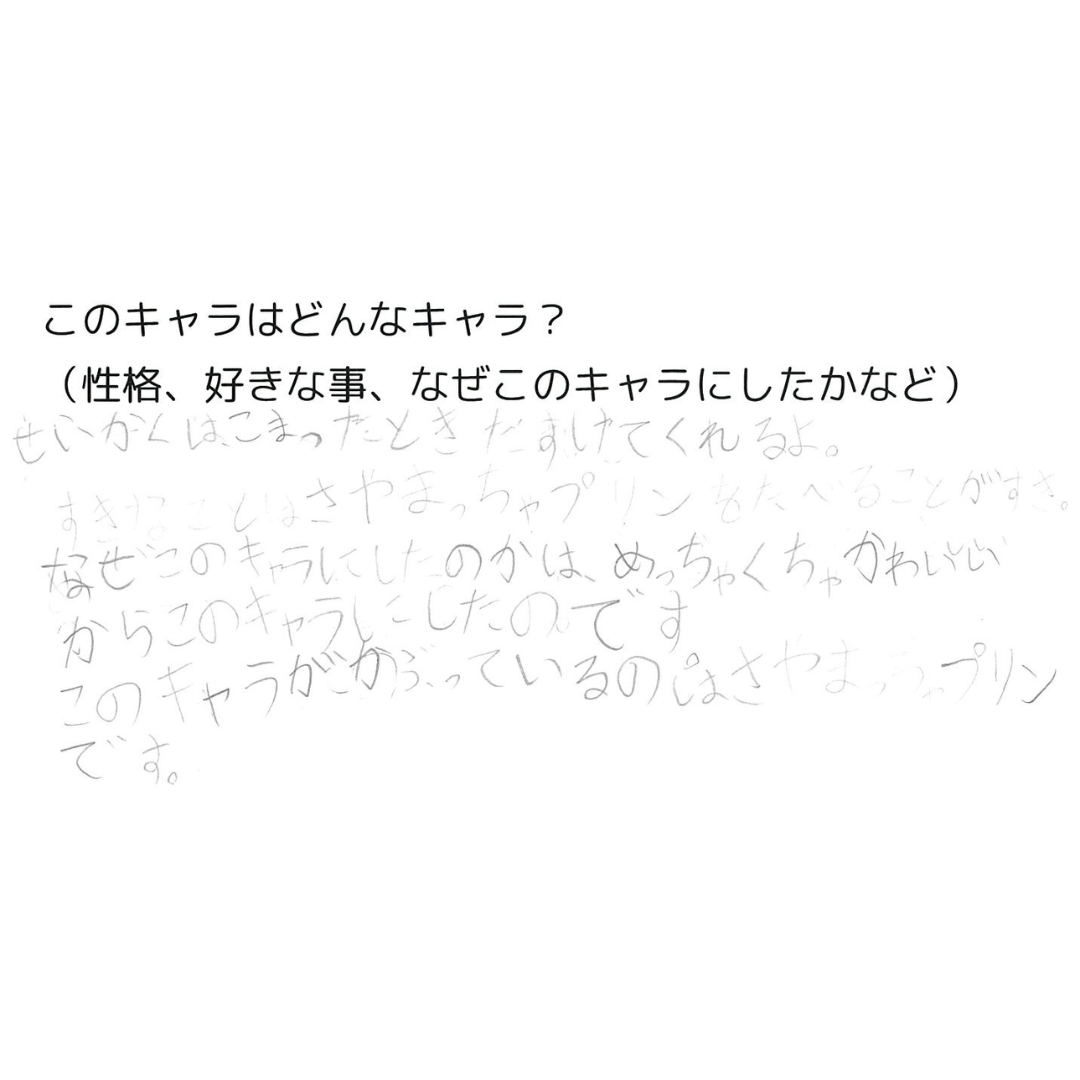 このキャラはどんなキャラ？
（性格、好きな事、なぜこのキャラにしたかなど）
せいかくは、こまったときたすけてくれるよ。
すきなことはさやまっちゃプリンをたべることがすき。
なぜこのキャラにしたのかは、めっちゃくちゃかわいい
からこのキャラにしたのです
このキャラがかぶっているのはさやまっちゃプリン
です。